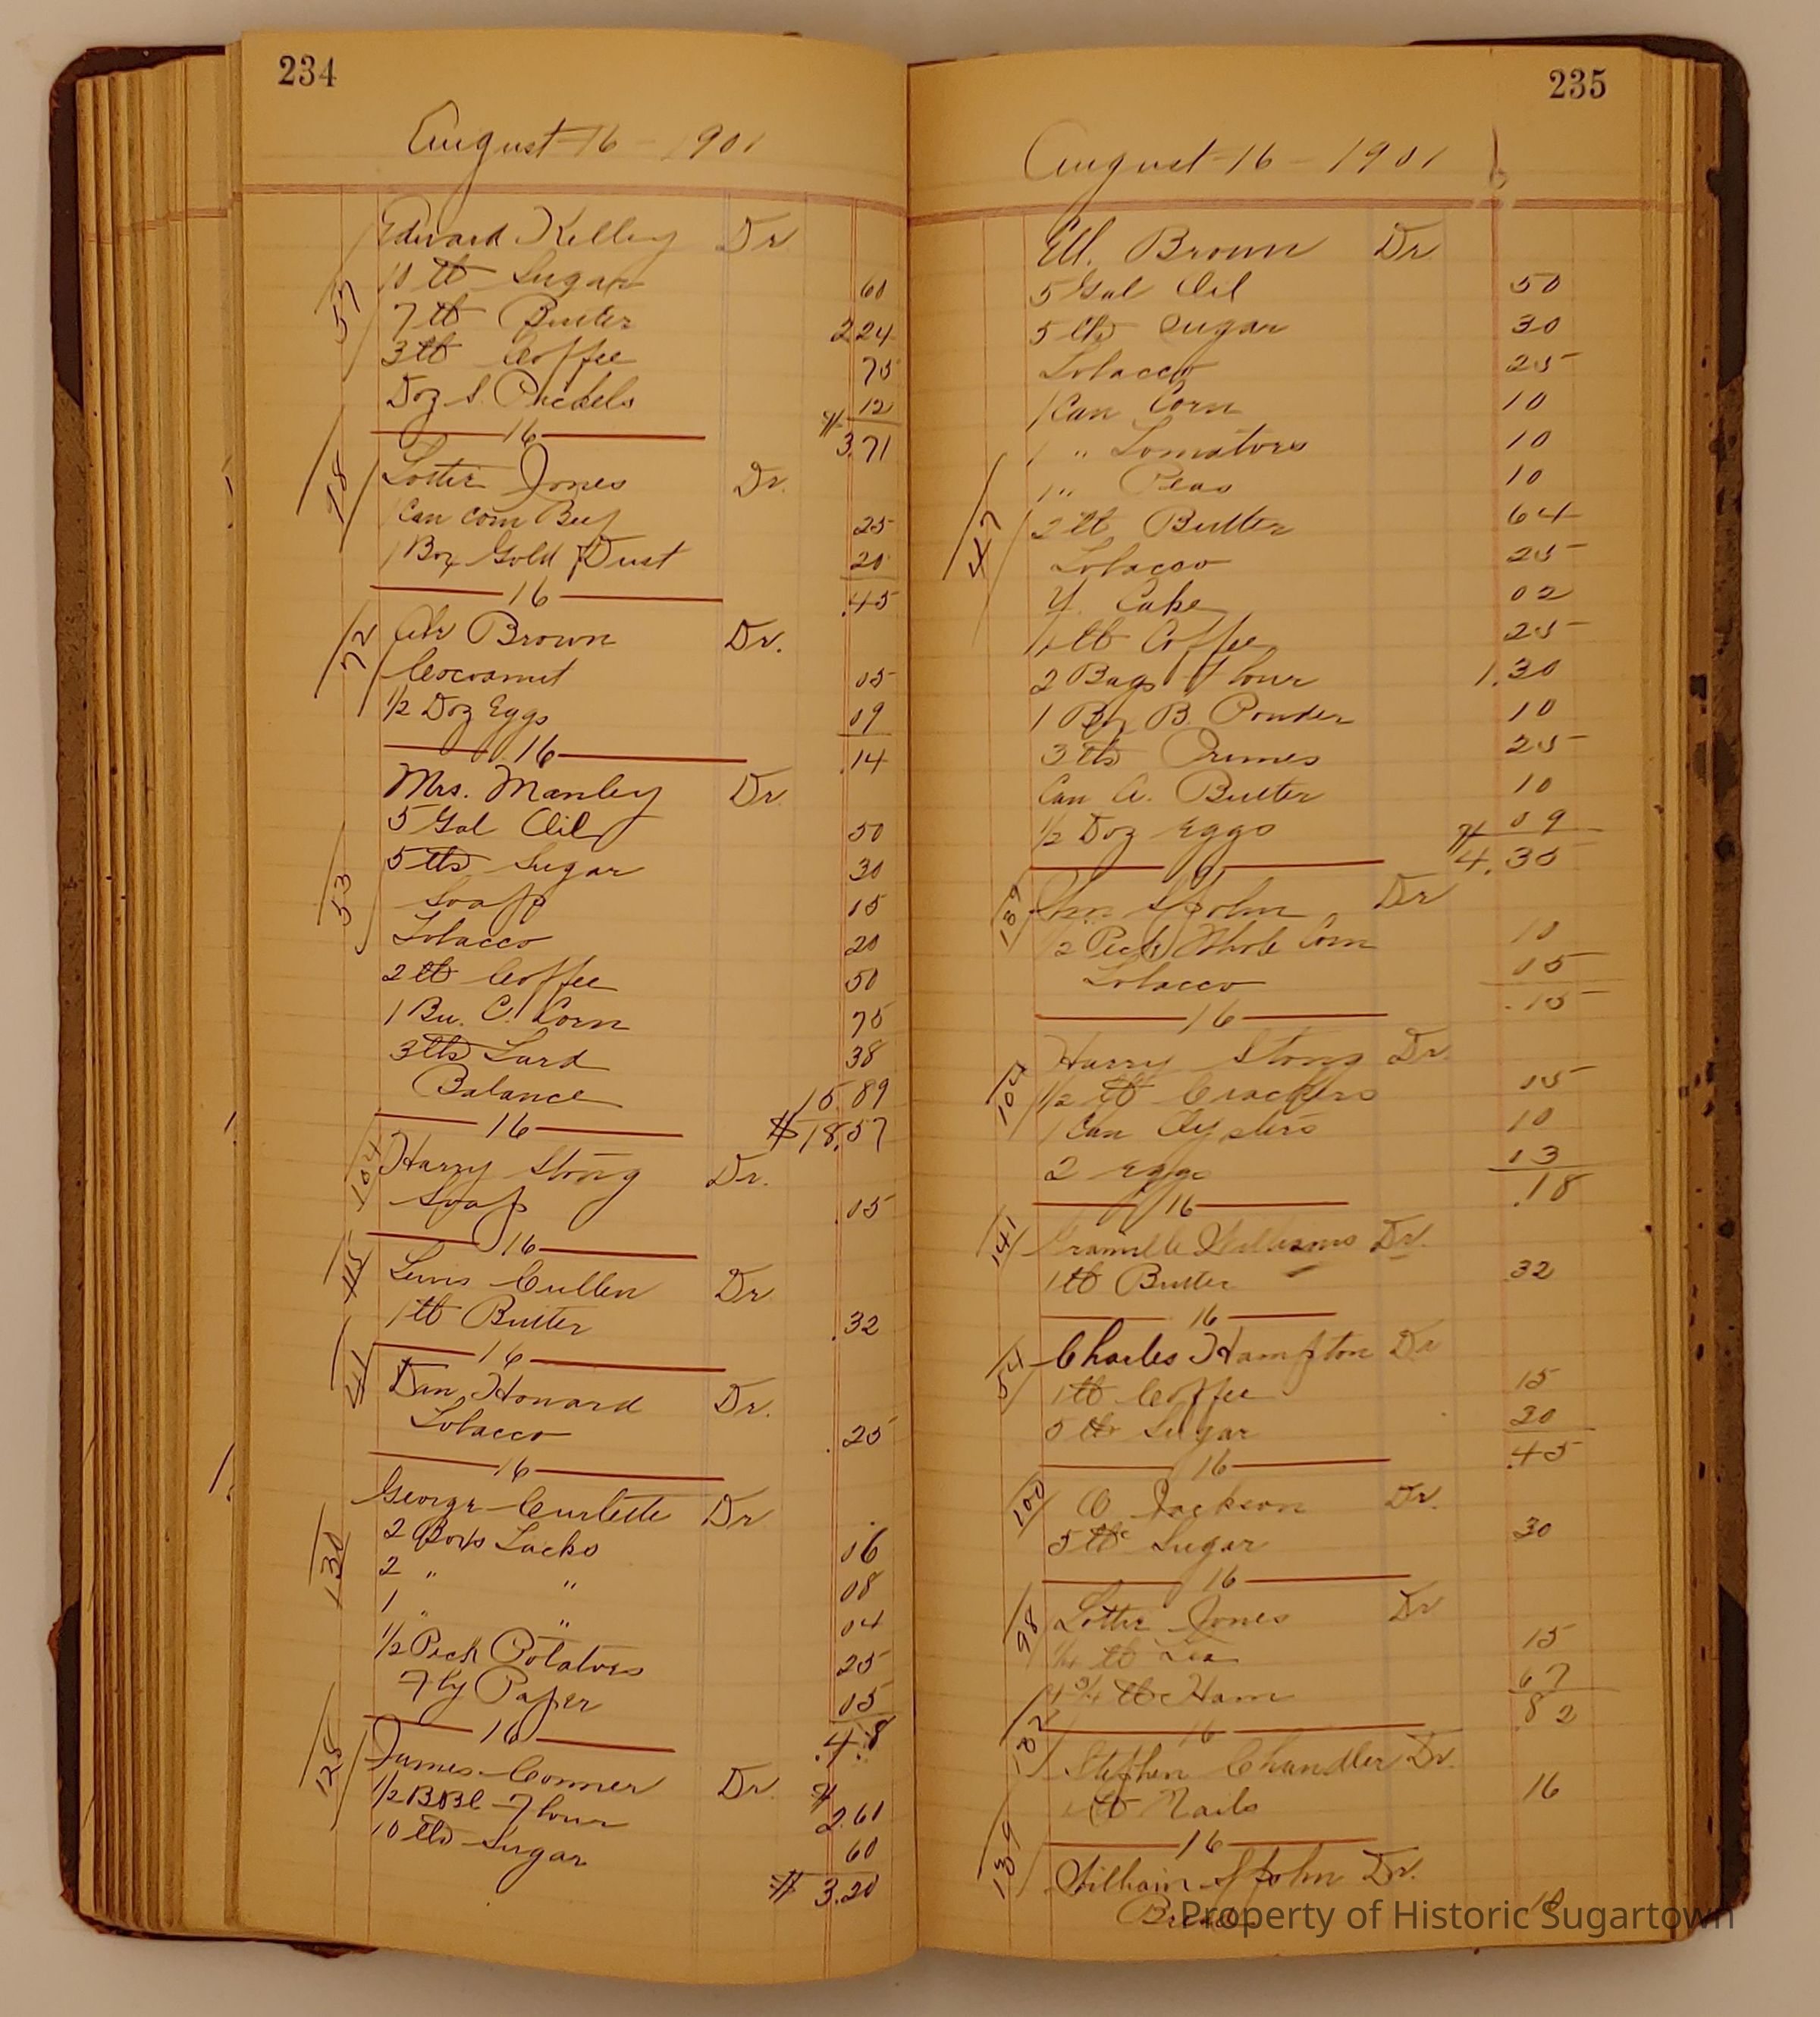 234
August 16 - 1901
Edward Kelley Dr
57
10 lb Sugar 60
7 lb Butter 2 24
3 lb Coffee 75
Doz S. Pickels 12
16
$ 3.71
98
Lottie Jones Dr.
1 Can Corn Beef 25
1 Box Gold Dust 20
16
.45
72
Brown Dr.
Cocoanut 05
1/2 Doz Eggs 09
16
.14
Mrs. Manley Dr
5 Gal Oil 50
53
5 lbs Sugar 30
Soap 15
Tobacco 20
2 lb Coffee 50
1 Bu. C. Corn 75
3 lbs Lard 38
Balance 15 89
16
$18.57
104
Harry Strong Dr.
Soap .05
16
115
Lewis Cullen Dr
1 lb Butter .32
16
41
Dan Howard Dr.
Tobacco .25
16
George Curlette Dr
130
2 Boxs Tacks 06
2 " " 08
1 " " 04
1/2 Peck Potatoes 25
Fly Paper 05
16
.48
128
James Conner Dr
1/2 BBl Flour $ 2.60
10 lbs Sugar 60
$ 3.20
235
August 16 - 1901
Brown Dr
5 Gal Oil 50
5 lbs Sugar 30
Tobacco 25
1 Can Corn 10
1 " Tomatoes 10
1 " Peas 10
47
2 lb Butter 64
Tobacco 25
Y. Cake 02
1 lb Coffee 25
2 Bags Flour 1.30
1 Bx B. Powder 10
3 lbs Prunes 25
Can A. Butter 10
1/2 Doz Eggs 09
$ 4.35
139
Spohn Dr
1/2 Peck Whole Corn 10
Tobacco 05
16
.15
104
Harry Strong Dr.
1/2 lb Crackers 05
1 Can Oysters 10
2 Eggs 03
16
.18
141
Granville Williams Dr.
1 lb Butter 32
16
54
Charles Hampton Dr
1 lb Coffee 15
5 lbs Sugar 30
16
.45
100
O Jackson Dr.
5 lbs Sugar 30
16
98
Lottie Jones Dr
1/4 lb Tea 15
4 3/4 lbs Ham 67
16
82
132
Stephen Chandler Dr.
lb Nails 16
16
139
William Spohn Dr.
Bread 10
Property of Historic Sugartown